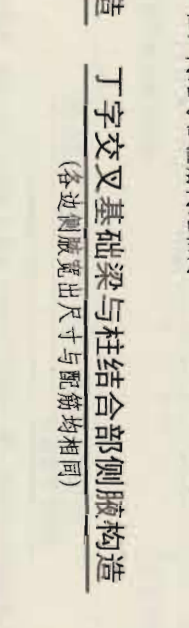 造
丁字交叉基础梁与柱结合部侧腋构造
(各边侧腋宽出尺寸与配筋均相同)